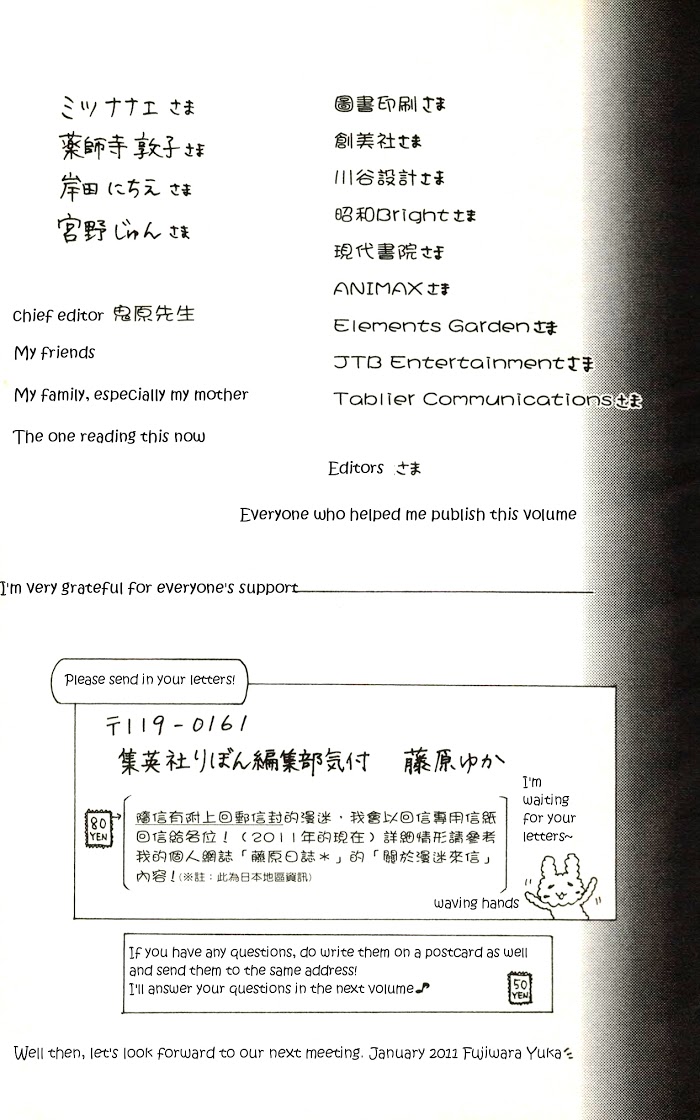 ミツナナエ さま
薬師寺 敦子さま
岸田 にちえ さま
宮野 じゅん さま
chief editor 鬼原先生
My friends
My family, especially my mother
The one reading this now
圖書印刷さま
創美社さま
川谷設計さま
昭和Brightさま
現代書院さま
ANIMAXさま
Elements Gardenさま
JTB Entertainmentさま
Tablier Communicationsさま
Editors さま
Everyone who helped me publish this volume
I'm very grateful for everyone's support
Please send in your letters!
〒119-0161
集英社りぼん編集部気付 藤原ゆか
80
YEN
隨信有附上回郵信封的漫迷,我會以回信專用信紙
回信給各位!(2011年的現在)詳細情形請參考
我的個人網誌「藤原日誌*」的「關於漫迷來信」
內容!(※註:此為日本地區資訊)
I'm
waiting
for your
letters~
waving hands
If you have any questions, do write them on a postcard as well
and send them to the same address!
I'll answer your questions in the next volume♪
50
YEN
Well then, let's look forward to our next meeting. January 2011 Fujiwara Yuka